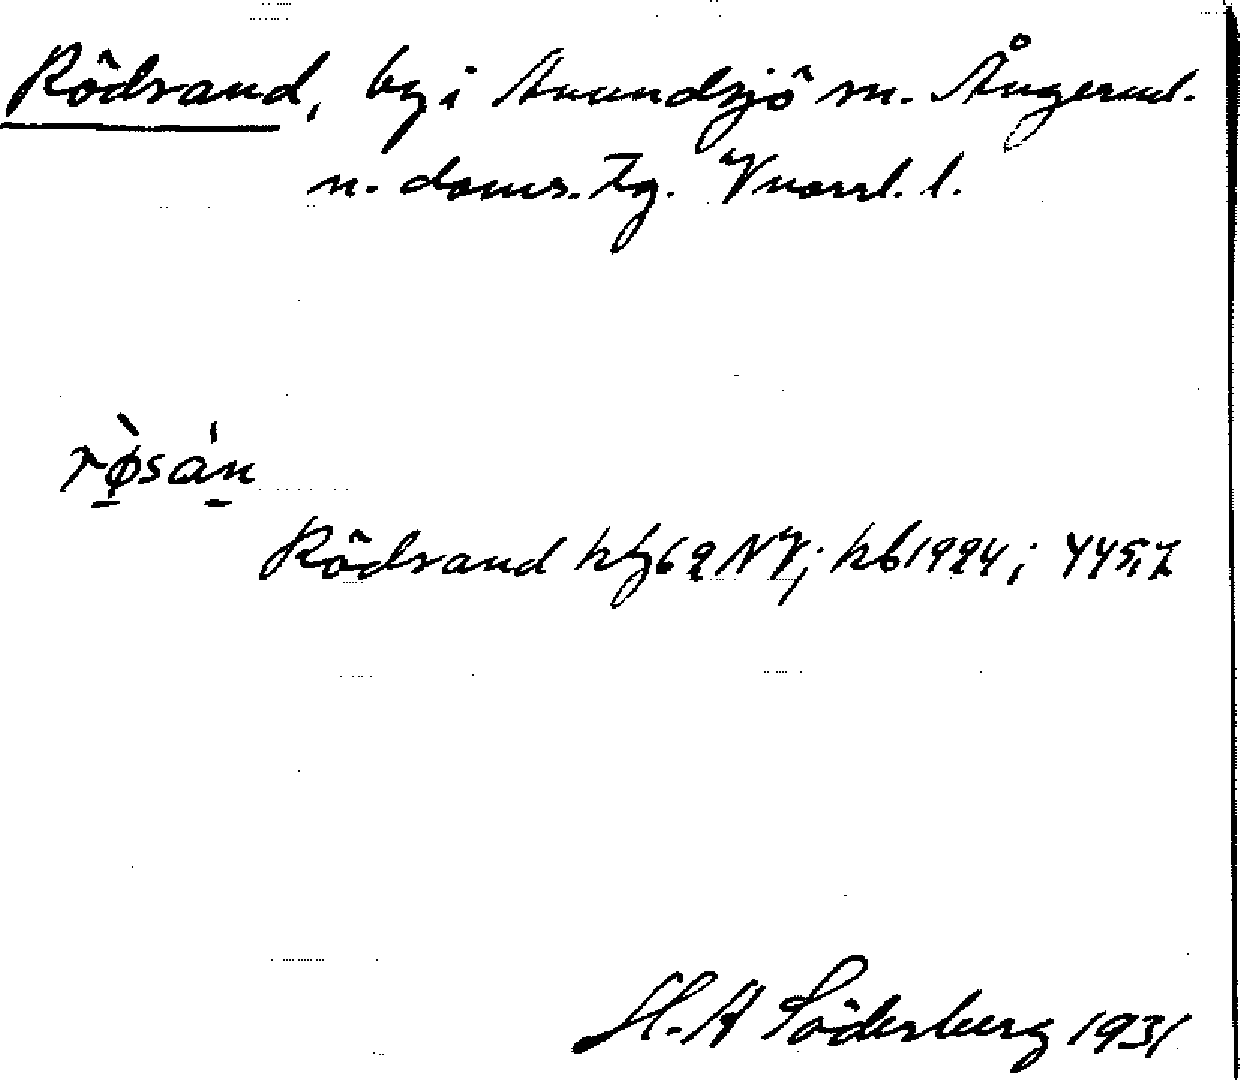 Rödsand, by i Anundsjö sn. Ångerml.
n. doms. Tg. Vnorrl. l.
rø̀sán
Rödsand kbl 62 NV; kb 1924; 445,2
H. A Söderberg 1931